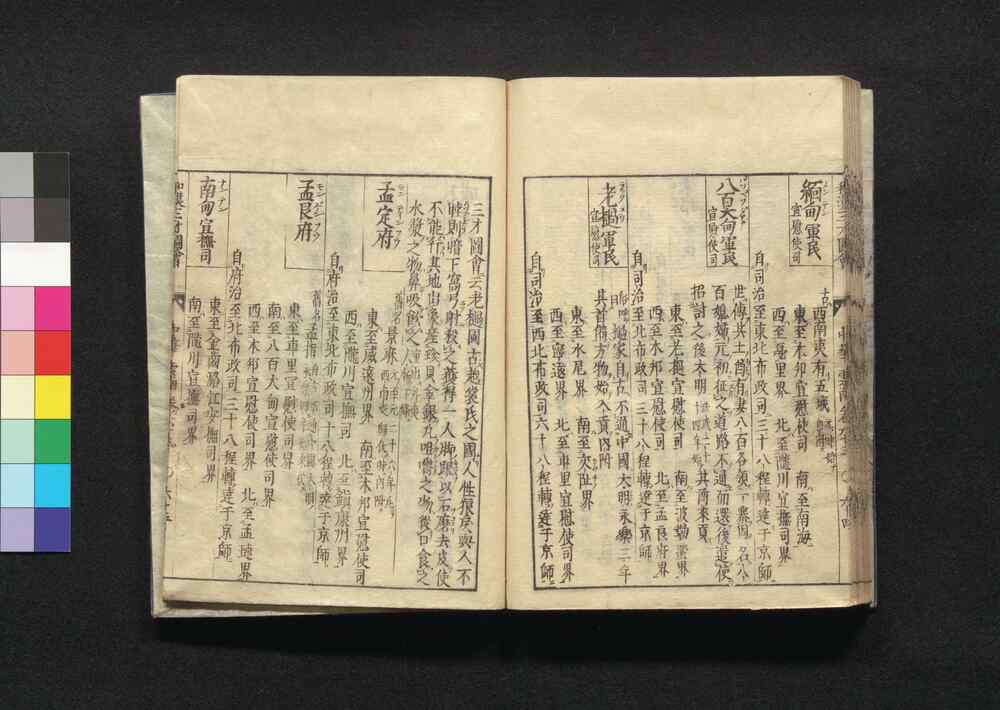 緬甸軍民
宣慰使司
古西南夷有五城
東至木邦宣慰使司　南至南海
西至戞里界　北至隴川宣撫司界
自司治至東北布政司三十八程轉達于京師
八百大甸軍民
宣慰使司
世傳其土酋有妻八百各領一寨因名八
百媳婦元初征之道路不通而還後遣使
招討之後大明其酋來貢
東至老撾宣慰使司　南至波勒蠻界
西至木邦宣慰使司　北至孟艮府界
自司治至北布政司三十八程轉達于京師
老撾軍民
宣慰使司
俗呼撾家自古不通中國大明永樂三年
其首備方物始入貢內附
東至水尼界　南至交趾界
西至寧遠界　北至車里宣慰使司界
自司治至西北布政司六十八程轉達于京師
三才圖會云老撾國古越裳氏之國人性狠戾與人不
睦則暗下窩弓射殺之獲得一人脚跟以石磨去皮使
不能行其地出象産珍貝金銀凡咀嚼之物從口食之
水漿之物鼻吸飲之
孟定府
舊名景麻
東至威遠州界　南至木邦宣慰使司
西至隴川宣撫司　北至鎮康州界
自府治至東北布政司十八程轉達于京師
孟艮府
舊名孟指
東至車里宣慰使司界
南至八百大甸宣慰使司界
西至木邦宣慰使司界　北至孟璉界
自府治至北布政司三十八程轉達于京師
南甸宣撫司
東至金南潞江安撫司界
南至隴川宣撫司界